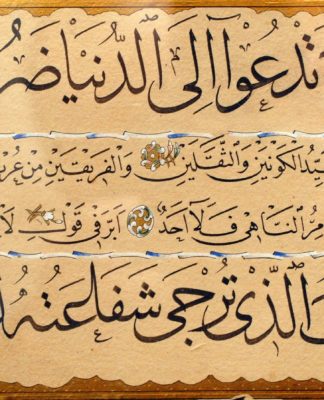 تَدْعُوا اِلَى الدُّنْيَا ضَرُ
يِّدُ الْكَوْنَيْنِ وَالثَّقَلَيْنِ وَالْفَرِيقَيْنِ مِنْ عُرْبٍ
مِرُ النَّاهِي فَلَا أَحَدٌ أَبَرَّ فِي قَوْلِ لَا
الَّذِي تُرْجَى شَفَاعَتُهُ لِ